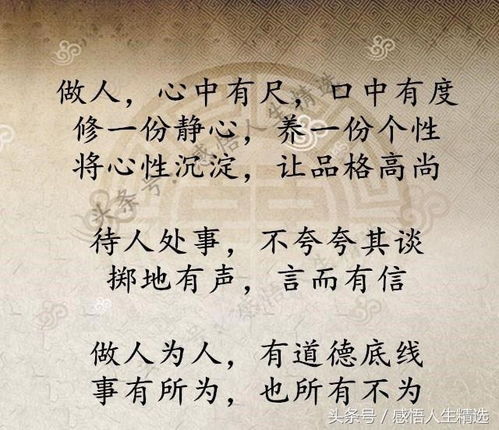 做人，心中有尺，口中有度
修一份静心，养一份个性
将心性沉淀，让品格高尚
待人处事，不夸夸其谈
掷地有声，言而有信
做人为人，有道德底线
事有所为，也所有不为
头条号：感悟人生精选
头条号/感悟人生精选